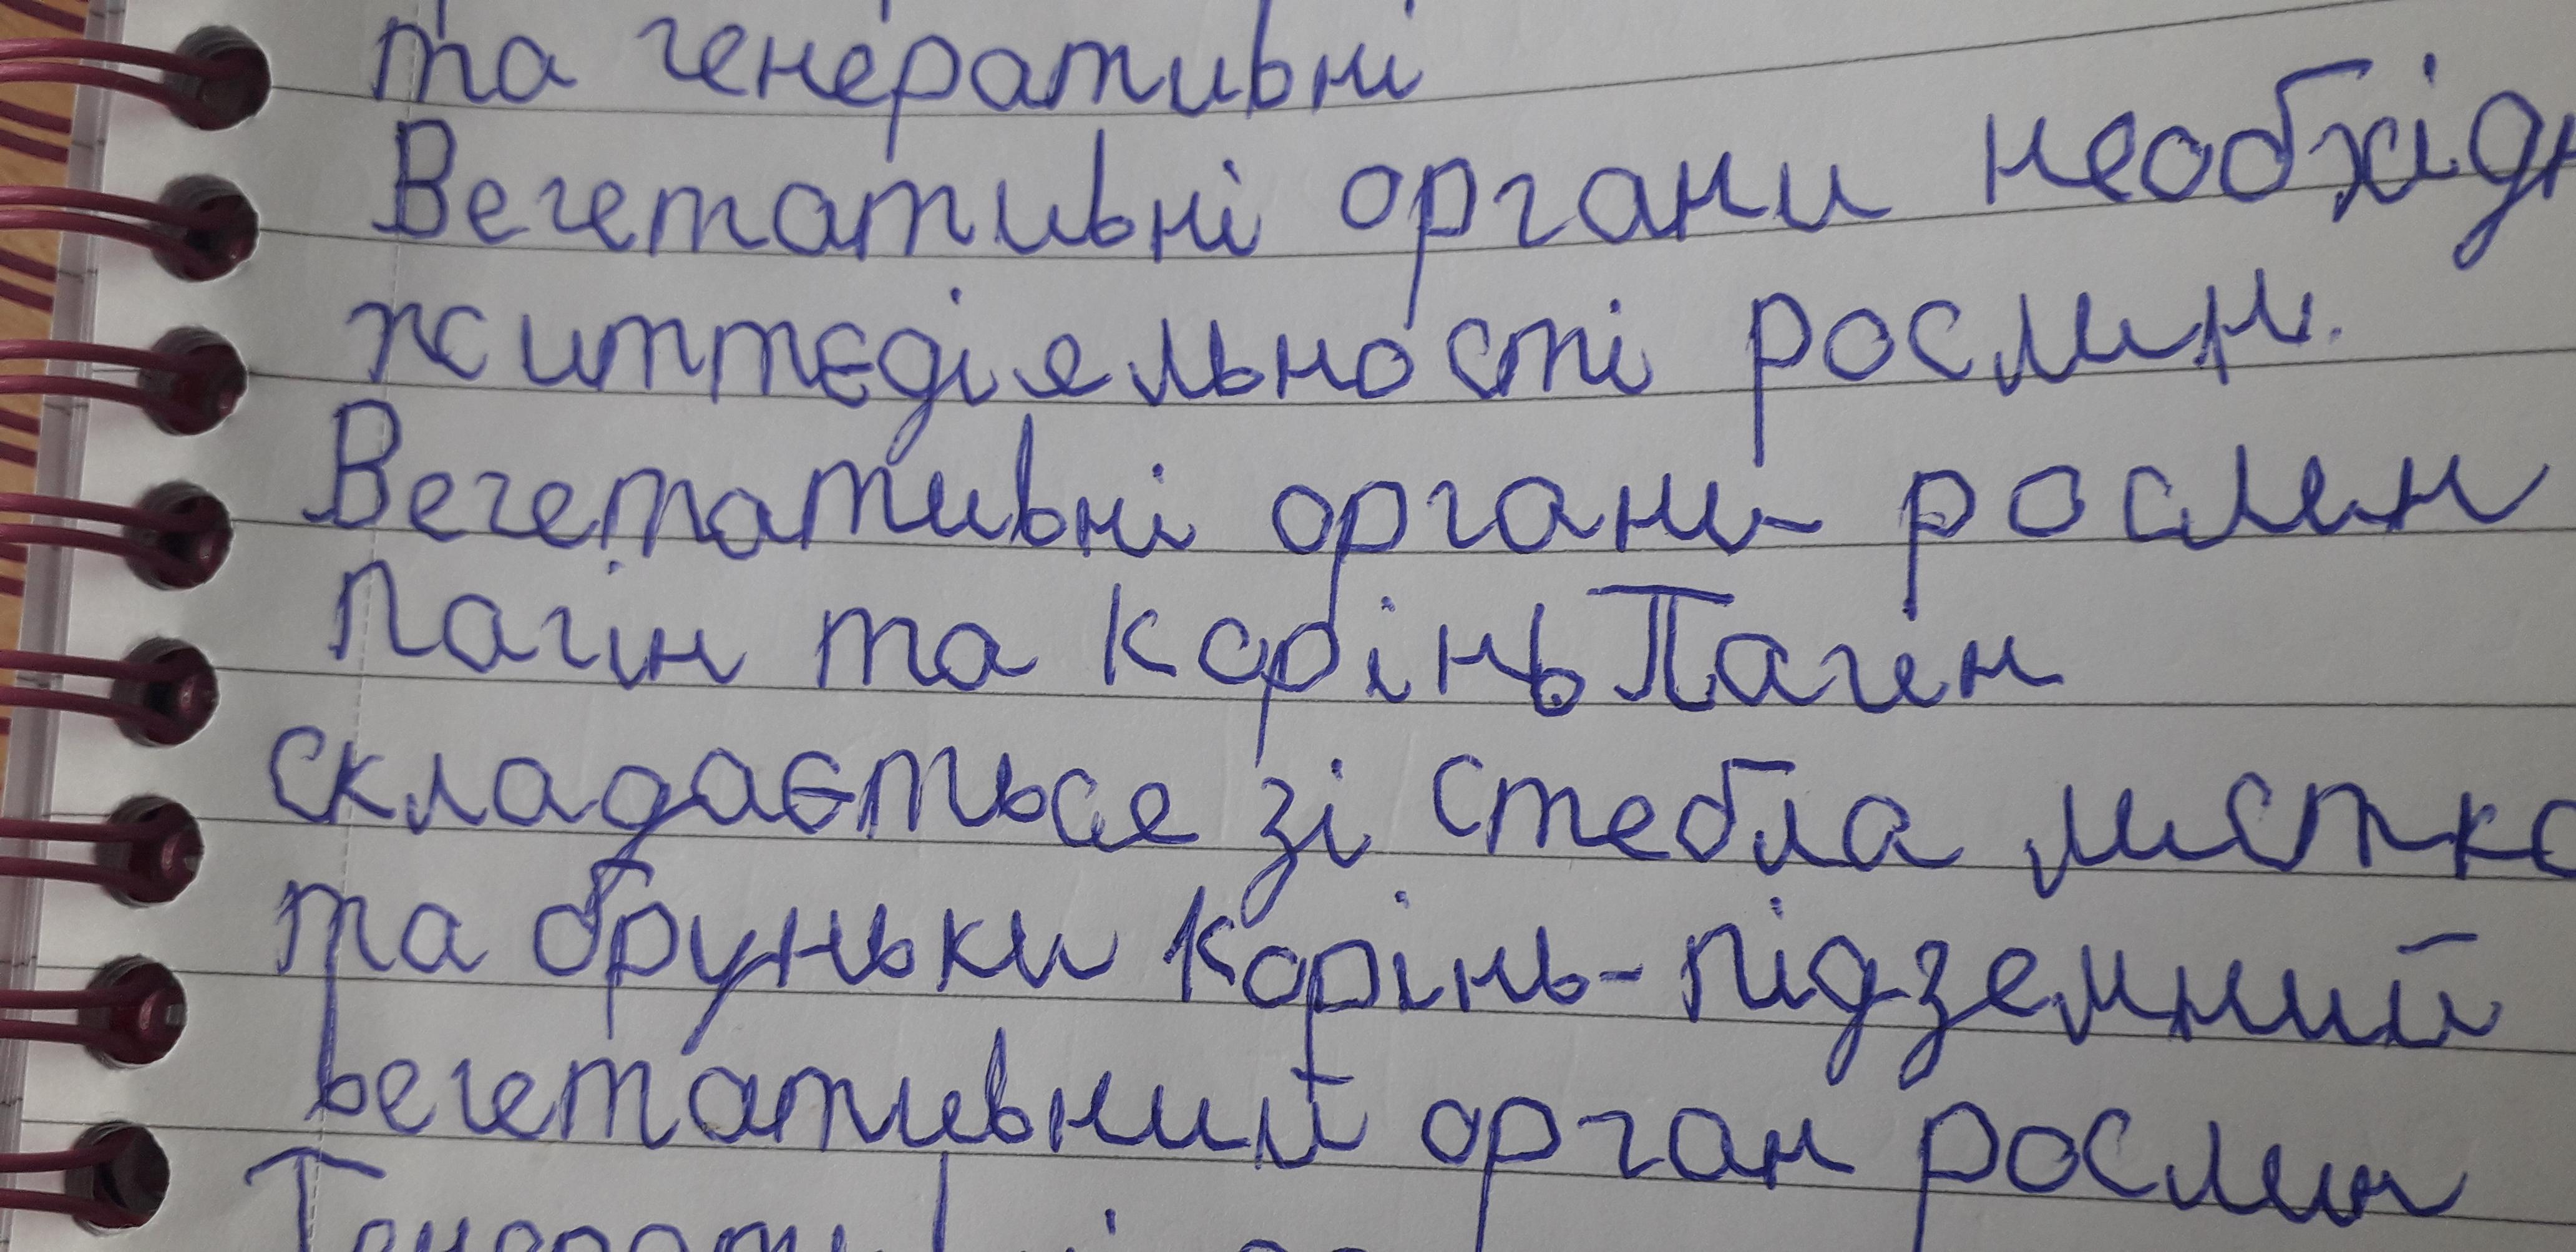 та генеративні
Вегетативні органи необхідн
життєдіяльності рослин.
Вегетативні органи- рослин
Пагін та корінь. Пагін
складається зі стебла листка
та бруньки Корінь-підземний
вегетативний орган рослин
Генеративні